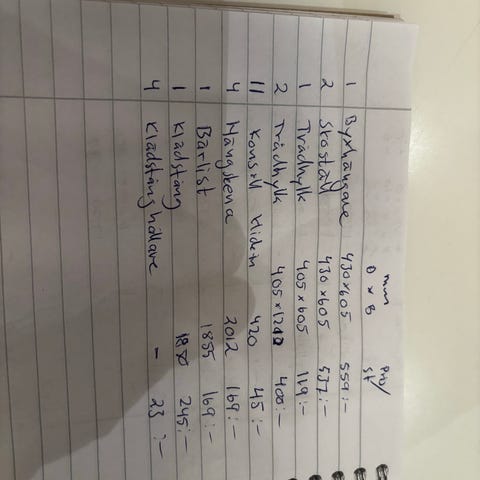 mm Pris/
D x B st
1 Byxhängare 430x605 559:-
2 Skoställ 430x605 537:-
1 Trådhylla 405x605 119:-
2 Trådhylla 405x1212 400:-
11 Konsoll 420 45:-
4 Hängskena 2012 169:-
1 Bärlist 1855 169:-
1 Klädstång 245:-
4 Klädstånghållare - 23:-